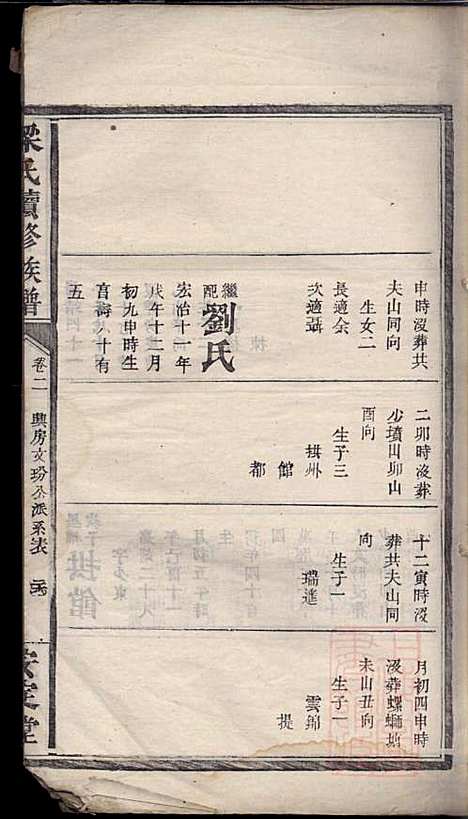 梁氏續修族譜
卷二
興房文玢公派系表
安定堂
申時沒葬共
夫山同向
生女二
長適余
次適聶
繼配劉氏
宏治十一年
戊午十二月
初九申時生
享壽八十有
五
二卯時沒葬
少墳田卯山
酉向
生子三
拱州
館
都
十二寅時沒
葬共夫山同
向
生子一
瑞進
月初四申時
沒葬螺螄坵
未山丑向
生子一
雲錦
提